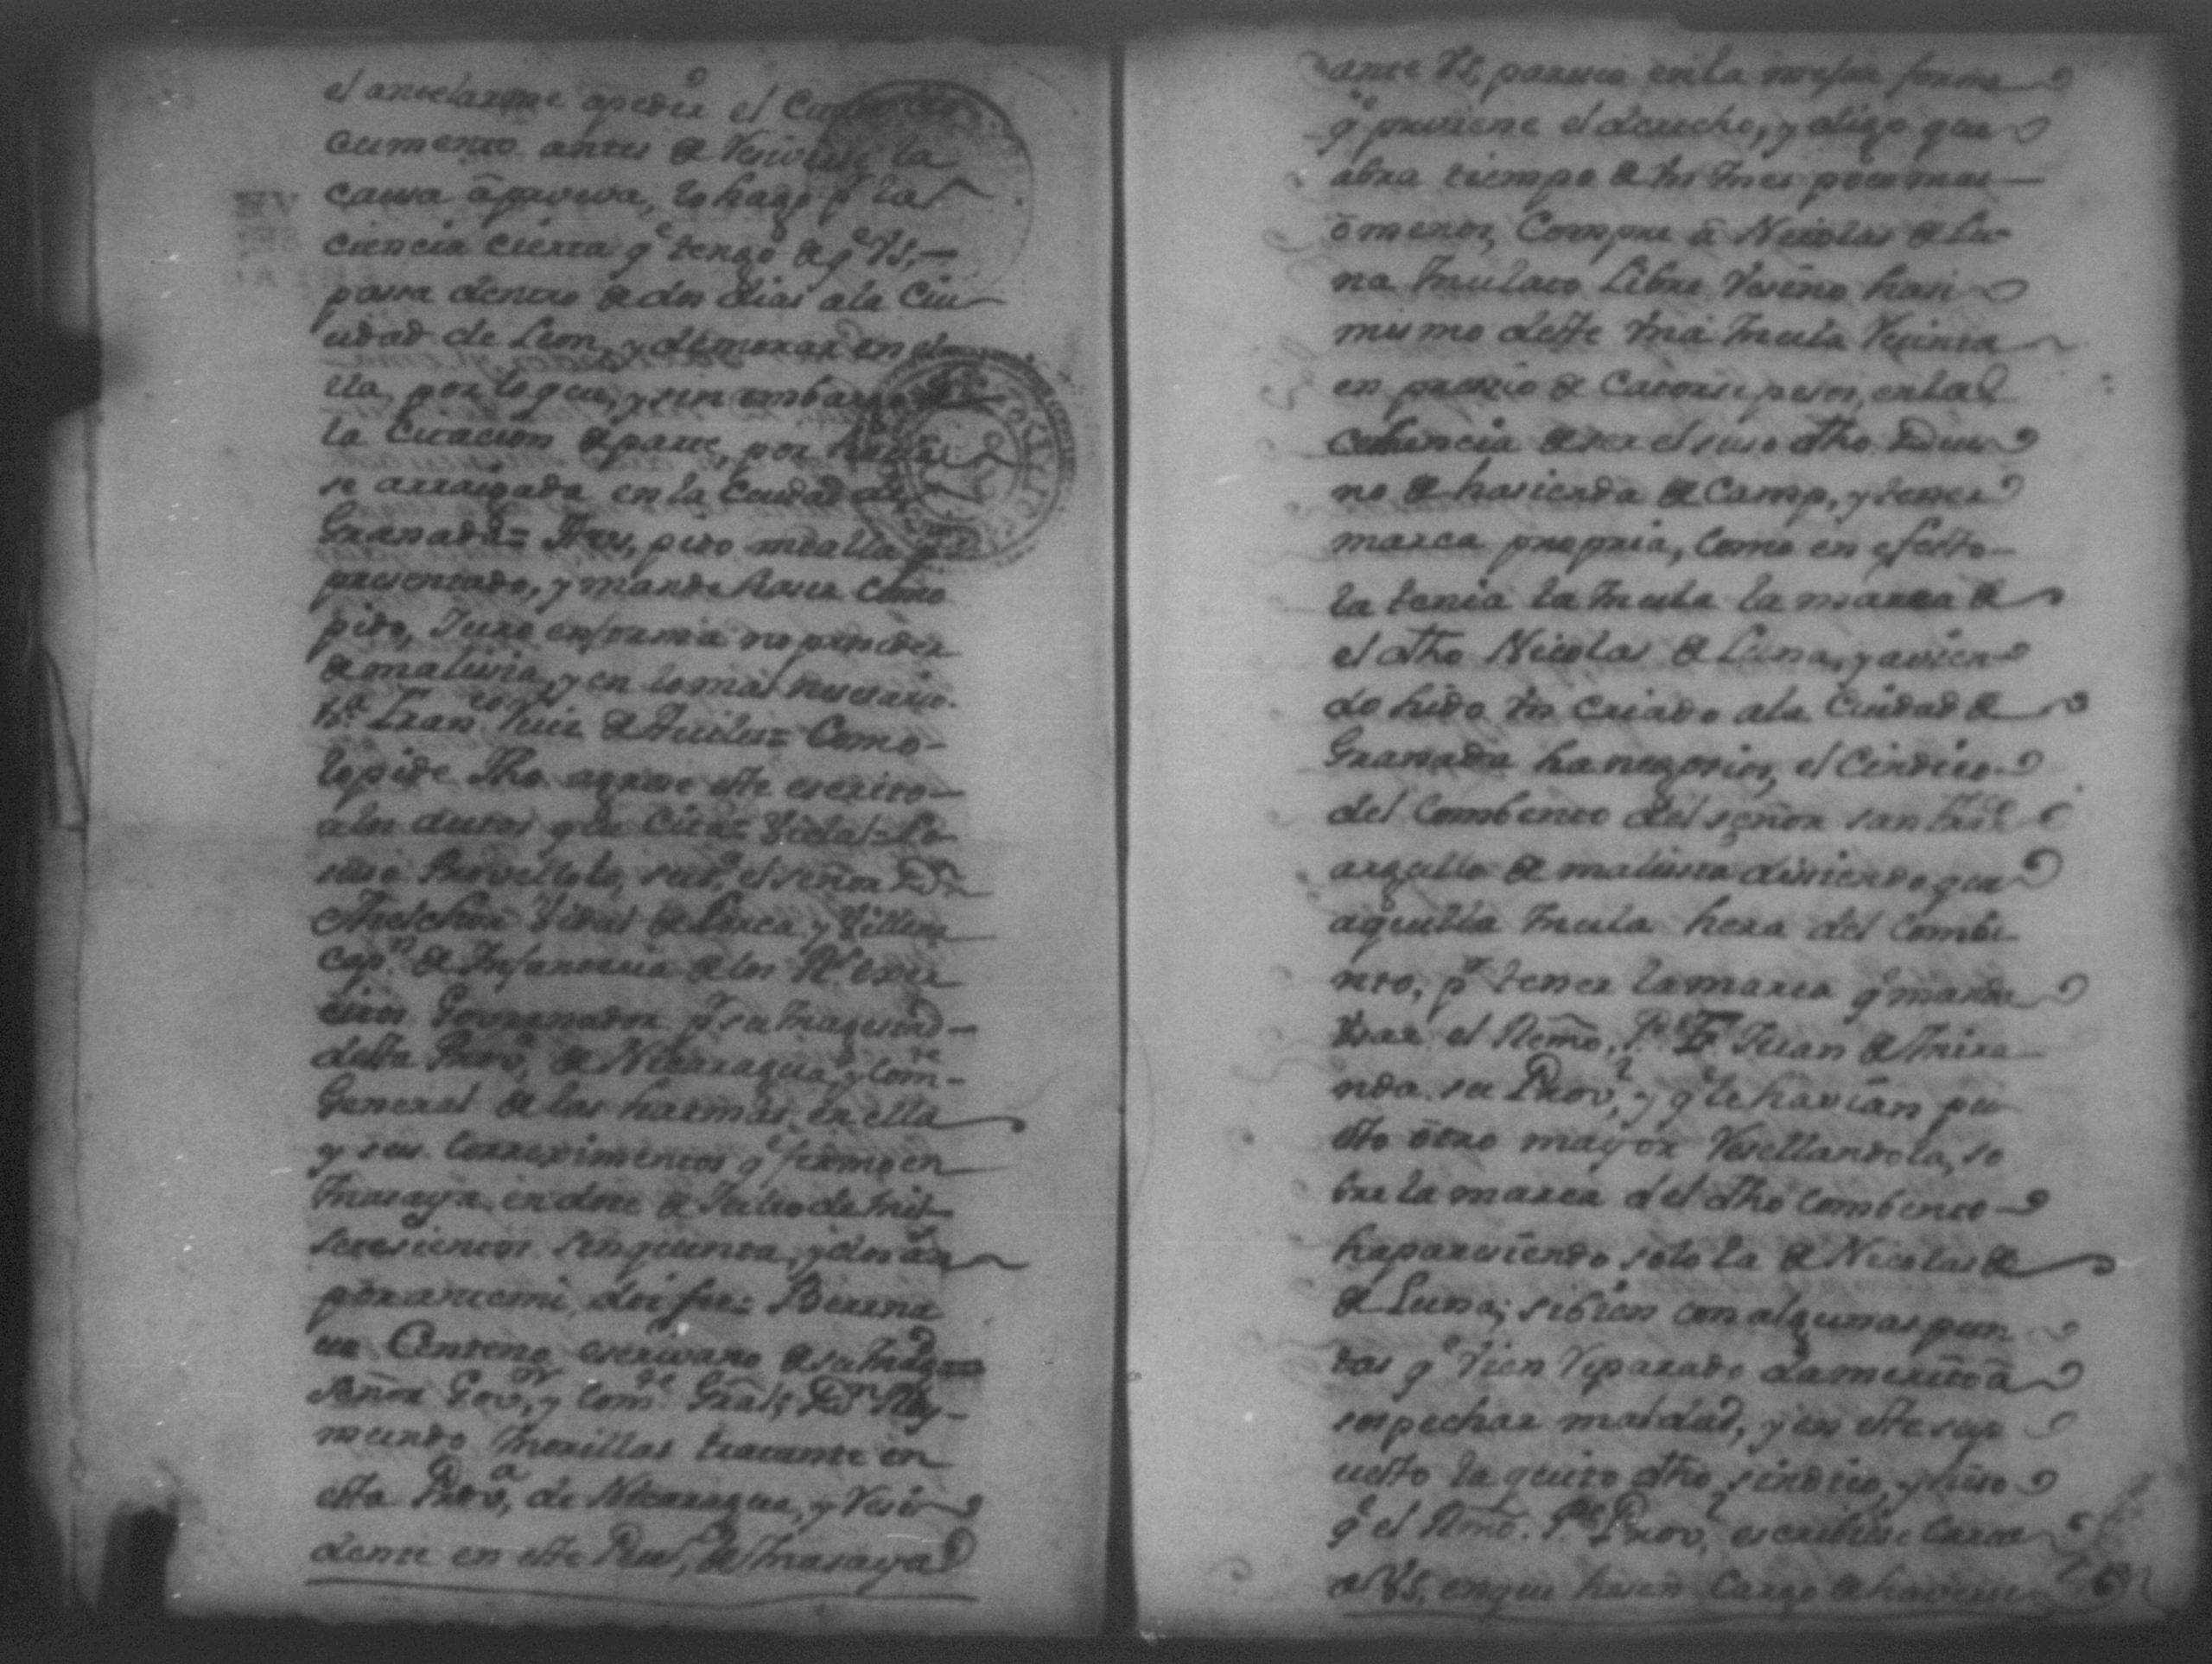 el ancelarme a pedir el
cumento antes de la
causa â prueva, lo hago pr la
ciencia cierta qe tengo de qe VS,
passa dentro de dos dias ala Ciu
udad de Leon, y demorar en e
lla, por lo que, y sin embargo
la Citacion de parte, por
se arraigada en la Ciudad de
Granada= pido
presentado, y mande haser Como
pido, Juro en forma no proceder
de malisia, y en lo mas nesesario.
Ruis de Aviles= Como
lo pide agrase este escrito
a los autos que Cita= Vidal=
Proveyolo, el señor Dn
Melchor Vidal de Lorca y Villena
Capn de Infanteria de los Rs. exer
citos Governador pr su Magestad
desta Prova, de Nicaragua, y Comte
General de las harmas en ella
y sus Correximientos qe firmo en
Masaya en dose de Julio de mil
setesientos sinquenta, y dos as
por ante mi, doi fee= Berna
ve Centeno escrivano de su Magd
Señor Govor, y Comte Gral; Dn Ray
mundo Morillas tratante en
esta Prova, de Nicaragua, y Resi
dente en este Pueo, de Masaya
ante VS, paresco en la mejor forma
qe previene el derecho, y digo que
abra tiempo de un mes poco mas
ô menos, Compre â Nicolas de Lu
na mulato Libre Vesino hasi
mismo deste una mula
en presio de Catorse pesos, en la
de ser el suso dho Due
no de hasienda de Camp, y tener
marca propria, Como en efecto
la tenia la mula la marca de
el dho Nicolas de Luna, y avien
do hido un criado ala Ciudad de
Granada ha negosios, el Cindico
del Combento del señor san Franco
argullo de malisia disiendo que
aquella mula hera del Combe
nto, pr tener la marca qe manda
Usar el Rmo. Pe. Fr. Juan de Mira
nda su Prov, y qe le havian pu
esto otro mayor Resellandola, so
bre la marca del dho Combento
haparesiendo solo la de Nicolas de
de Luna; si bien con algunas pun
tas qe Vien Reparado da merito â
sospechar maldad, y en este sup
uesto la quito dho sindico, y hiso
qe el Rmo. Pe. Prov, escribiese Carta
a VS, en que hasen Cargo de haverse